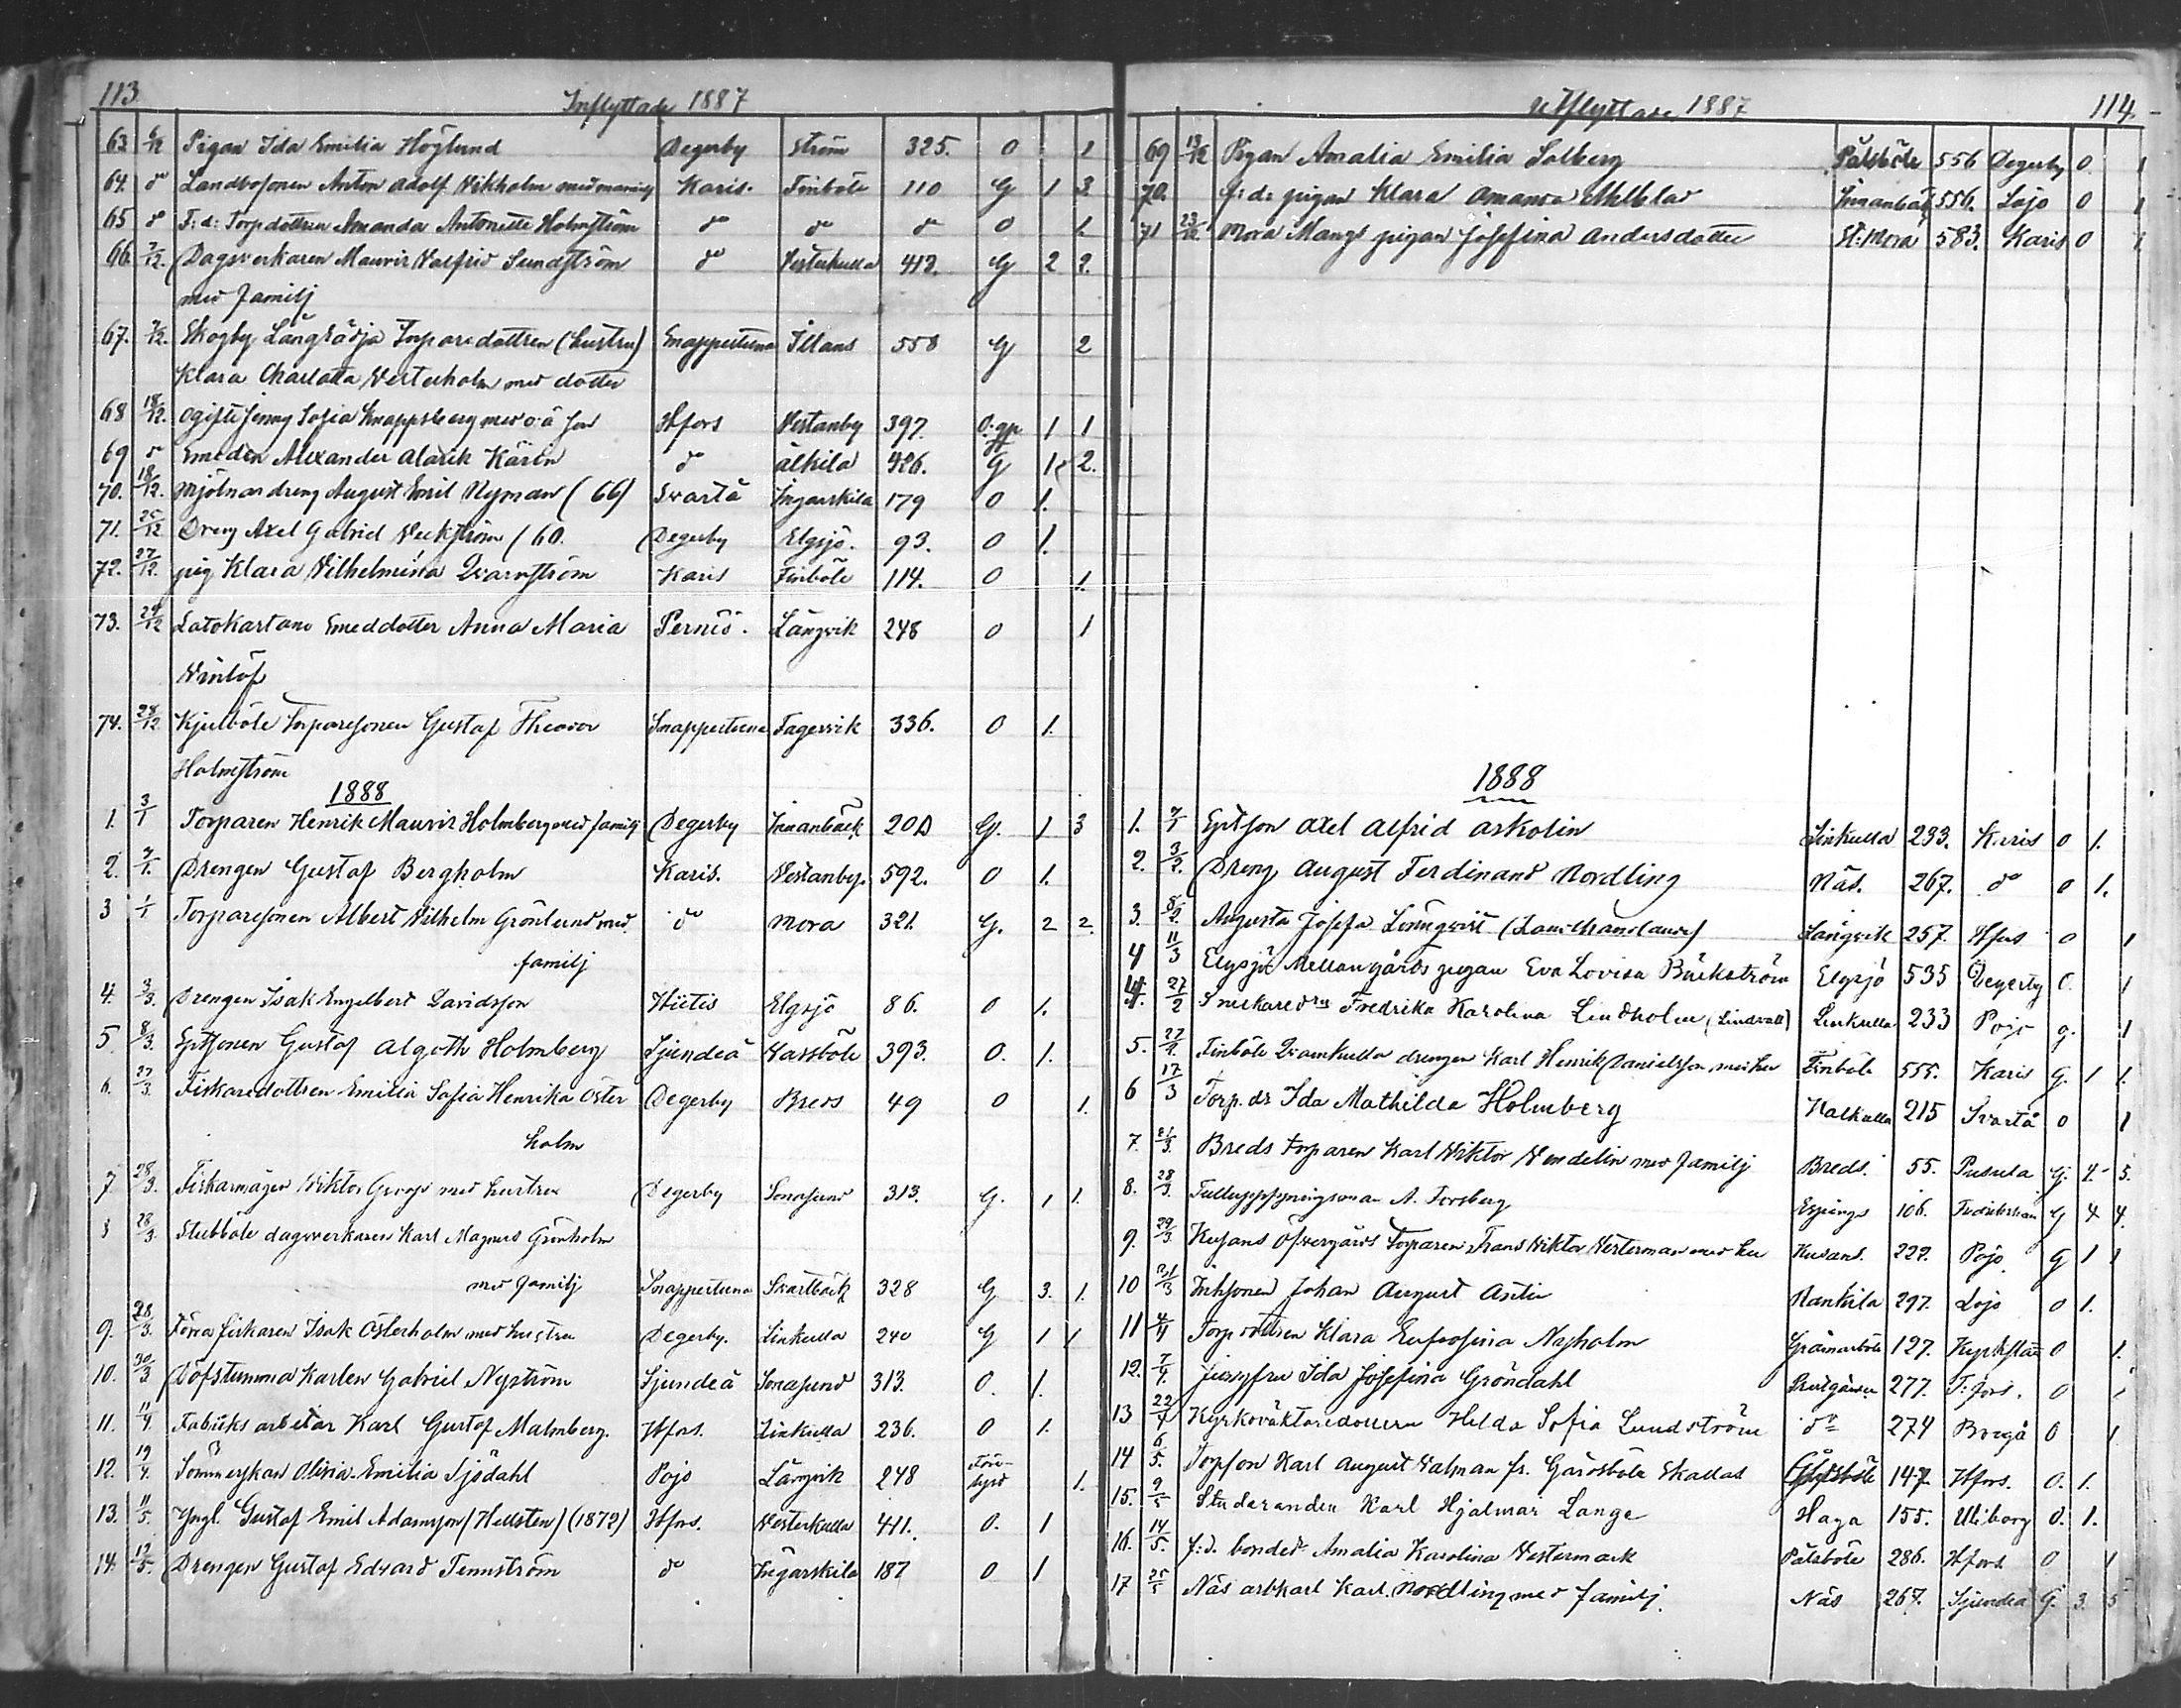 113
Inflyttade 1887
63. 6/12 Pigan Ida Emilia Höglund Degerby Ström 325. O 1
64. do Landbosonen Anton Adolf Wikholm med Karis. Finböle 110 G 1 3
65 do F:d: Torpdottren Amanda Antonette Holmström do do do O 1.
66. 7/12. Dagsverkaren Mauriz Walfrid Sundström do Westerkulla 412. G 2 2.
med familj
67. 7/12. Skogby Långrådja Torparedottren (hustru) Snappertuna Illans 558 G 2
Klara Charlotta Westerholm med dotter
68 18/12. ogifte Jenny Sofia Knappsberg med o: ä son Hfors Westanby 397. 1 1
69 do Smeden Alexander Alarik Karén do älkila 426. G 1 2.
70. 18/12. Mjölnardreng August Emil Nyman (66) Svartå Ingarskila 179 O 1.
71. 25/12 Dreng Axel Gabriel Veckström (60. Degerby Elgsjö. 93. O 1.
72. 27/12. pig Klara Wilhelmina Qvarnström Karis Finböle 114. O 1.
73. 29/12 Latokartano Smeddotter Anna Maria Pernio. Långvik 248 O 1
Winlöf
74. 28/12 Kjulböle Torparesonen Gustaf Theodor Snappertuna Fagervik 336. O 1.
Holmström
1888
1. 3/1 Torparen Henrik Mauriz Holmberg med familj Degerby Innanbäck 20 G. 1 3
2. 7/1. Drengen Gustaf Bergholm Karis. Westanby. 592. O 1.
3 1/1 Torparesonen Albert Wilhelm Grönlund med do Mora 321. G. 2 2.
familj
4. 3/3. Drengen Isak Engelbert Davidsson Hiitis Elgsjö 86. O 1.
5. 8/3. Gustaf Algoth Holmberg Sjundeå Wassböle 393. O. 1.
6. 27/3. Fiskaredottren Emilia Sofia Henrika Öster Degerby Breds 49 O 1.
holm
7 28/3. Fiskarmågen Wiktor med hustru Degerby Sonasund 313. G. 1 1.
8 28/3. Stubböle dagsverkaren Karl Magnus Grönholm
med familj Snappertuna Svartbäck 328 G 3. 1.
9. 28/3. Förra fiskaren Isak Österholm med hustru Degerby. Linkulla 240 G 1 1
10. 30/3 Döfstumma Karlen Gabriel Nyström Sjundeå Sonasund 313. O. 1.
11. 11/4. Fabriks arbetar Karl Gustaf Malmberg. Hfors. Linkulla 236. O 1.
12. 19/4. Sömmerskan Olivia Emilia Sjödahl Pojo Långvik 248 1.
13. 11/5. Yngl. Gustaf Emil Adamsson (Hellsten) (1872) Hfors. Westerkulla 411. O. 1
14. 12/5. Drengen Gustaf Edvard Tennström do Ingarskila 187 O 1
Utflyttade 1887
114.
69 13/12 Pigan Amalia Emilia Solberg Pålsböle 556 Degerby O. 1
70. f: d: pigan Klara Amanda Ahlblad Innanbäck 556. Lojo O 1
71 23/12. Mora Mangs pigan Josefina Andersdotter St: Mora 583. Karis O 1
1888
1. 7/1 Axel Alfrid Askolin Linkulla 233. Karis O 1.
2. 3/2. Dreng August Ferdinand Nordling Näs. 267. do O 1.
3. 8/2. Augusta Josefa Lönnqvist Långvik 257. Hfors O 1
4 11/3 Elgsjö Mellangårds pigan Eva Lovisa Bäckström Elgsjö 535 Degerby O. 1
4. 27/2 Snickare Fredrika Karolina Lindholm (Lindvall) Linkulla 233 Pojo g. 1
5. 27/2. Finböle Qvarnkulla drengen Karl Henrik Danielsson med hu Finböle 555. Karis G. 1 1.
6 17/3 Torp. dr Ida Mathilda Holmberg Walkulla 215 Svartå O 1
7. 21/3. Breds torparen Karl Wiktor Wendelin med familj Breds 55. Pusula G. 4. 5.
8. 28/3. A. Forsberg Espings 106. G 4 4.
9. 29/3. Kusans Öfvergårds Torparen Frans Wiktor Westerman med hu Kusans. 222. Pojo G 1 1
10 31/3 Johan August Antin Nankila 297. Lojo O 1.
11 4/4 Torpdottren Klara Eufrosina Nyholm 127. Kyrkslätt O 1.
12. 7/4. Jungfru Ida Josefina Gröndahl Prestgården 277. T:fors. O 1
13 22/4 Kyrkoväktaredottern Hilda Sofia Lundström do 274 Borgå O 1
14 6/5. Torpson Karl August Walman fr. Gårdsböle Skallas 147 Hfors. O. 1.
15. 9/5 Studeranden Karl Hjalmar Lange Haga 155. Uleborg O. 1.
16. 14/5. f:d. bonded. Amalia Karolina Westermark Pålsböle 286. Hfors. O 1
17 25/5 Näs arbkarl Karl Nordling med familj. Näs 267. Sjundeå G. 3. 5